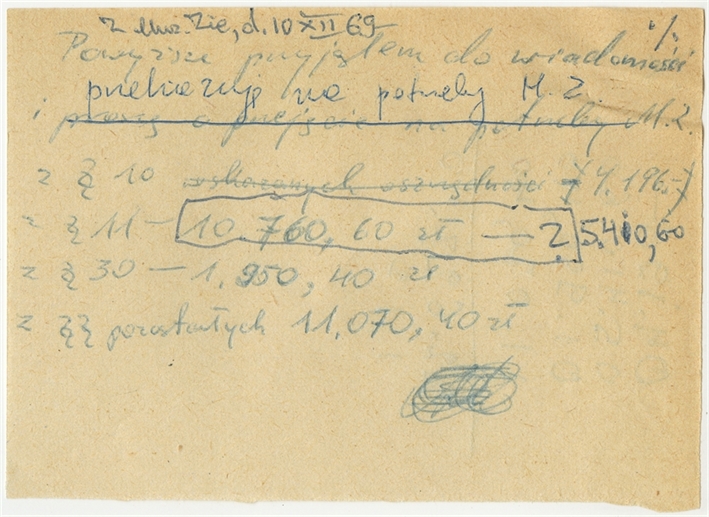 Z Muz. Zię, d. 10 XII 69
Powyższe przyjąłem do wiadomości
przekazuję na potrzeby M.Z.
i proszę o przejście na potrzeby M.Z.
z § 10 wskazanych oszczędności
z § 11 — 10.760,60 zł — 25.410,60
z § 30 — 1.950,40 zł
z §§ pozostałych 11.070,40 zł